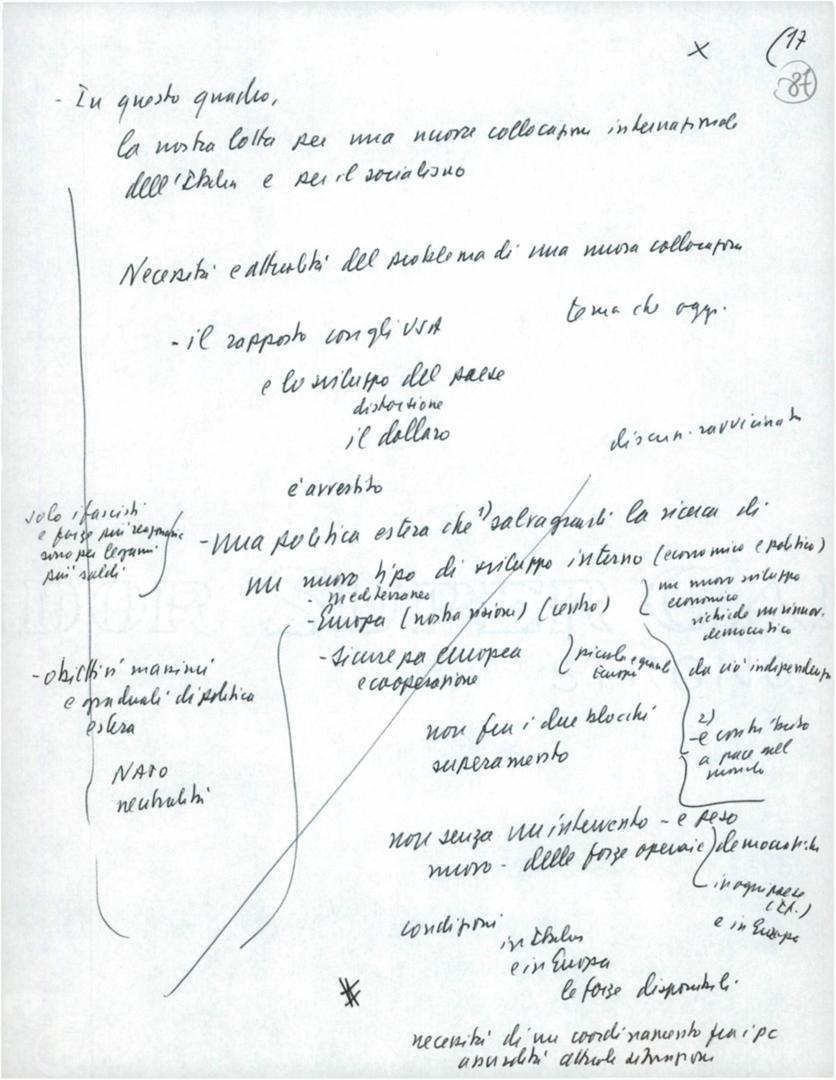 x (17
87
- In questo quadro,
la nostra lotta per una nuova collocazione internazionale
dell'Italia e per il socialismo
Necessità e attualità del problema di una nuova collocazione
tema che oggi.
- il rapporto con gli USA
e lo sviluppo del paese
distorsione
il dollaro
discun. ravvicinata
è avvertito
solo i fascisti
e forze più reazionarie
sono per legami
più saldi
- una politica estera che 1) salvaguardi la ricerca di
un nuovo tipo di sviluppo interno (economico e politico)
un nuovo sviluppo
economico
richiede un rinnov.
democratico
mediterraneo
- Europa (nostra visione) (centro)
- Sicurezza europea
e cooperazione
piccola e grande
Europa
da ciò indipendenza
- obiettivi massimi
e graduali di politica
estera
non fra i due blocchi
superamento
2)
- e contributo
a pace nel
mondo
NATO
neutralità
non senza un intervento - e peso
nuovo - delle forze operaie democratiche
in ogni paese
(It.)
e in Europa
condizioni
in Italia
e in Europa
le forze disponibili.
necessità di un coordinamento fra i pc
assurdità attuale situazione